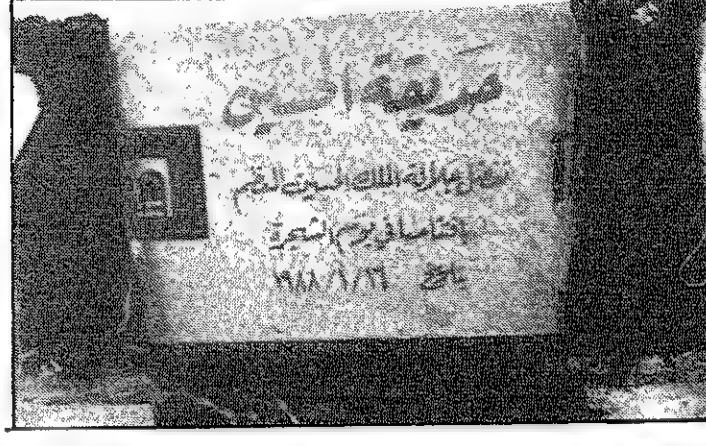 حديقة الحسين
تفضل جلالة الملك الحسين المعظم
افتتاحها في يوم الشجرة
تاريخ ١٩٨٨/١/١٦